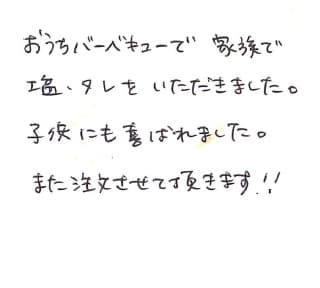 おうちバーベキューで 家族で
塩、タレを いただきました。
子供にも喜ばれました。
また注文させて頂きます!!